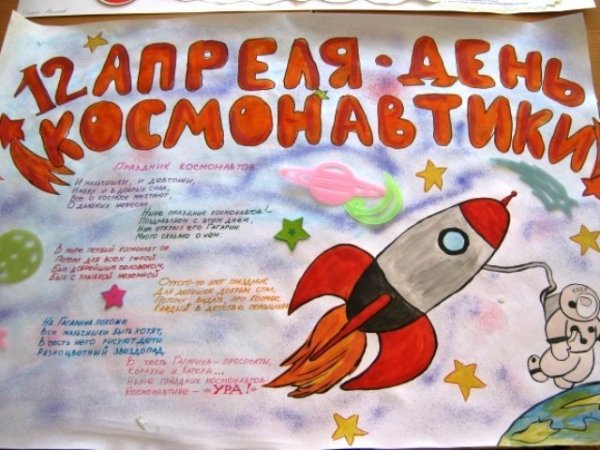 12 АПРЕЛЯ - ДЕНЬ
КОСМОНАВТИКИ
ПРАЗДНИК КОСМОНАВТОВ
И МАЛЬЧИШКИ, И ДЕВЧОНКИ,
НАЯВУ И В ДОБРЫХ СНАХ,
ВСЕ О КОСМОСЕ МЕЧТАЮТ,
О ДАЛЁКИХ НЕБЕСАХ.
НЫНЕ ПРАЗДНИК КОСМОНАВТОВ! -
ПОЗДРАВЛЯЕМ С ЭТИМ ДНЁМ,
НАМ ОТКРЫЛ ЕГО ГАГАРИН,
МНОГО СКАЗАНО О НЁМ.
В МИРЕ ПЕРВЫЙ КОСМОНАВТ ОН
ПОТОМУ ДЛЯ ВСЕХ ГЕРОЙ
БЫЛ ДОБРЕЙШИМ ЧЕЛОВЕКОМ,
БЫЛ С УЛЫБКОЙ НЕЗЕМНОЙ
ОТТОГО-ТО ЭТОТ ПРАЗДНИК
ДЛЯ ДЕТИШЕК ДОБРЫМ СТАЛ,
ПОТОМУ, ВИДАТЬ, ПРО КОСМОС
КАЖДЫЙ В ДЕТСТВЕ
НА ГАГАРИНА ПОХОЖИ
ВСЕ МАЛЬЧИШКИ БЫТЬ ХОТЯТ,
В ЧЕСТЬ НЕГО РИСУЮТ ДЕТИ
РАЗНОЦВЕТНЫЙ ЗВЕЗДОПАД,
В ЧЕСТЬ ГАГАРИНА - ПРОСПЕКТЫ,
КОРАБЛИ И КАТЕРА...
НЫНЕ ПРАЗДНИК КОСМОНАВТОВ
КОСМОНАВТИКЕ - "УРА!"
СССР